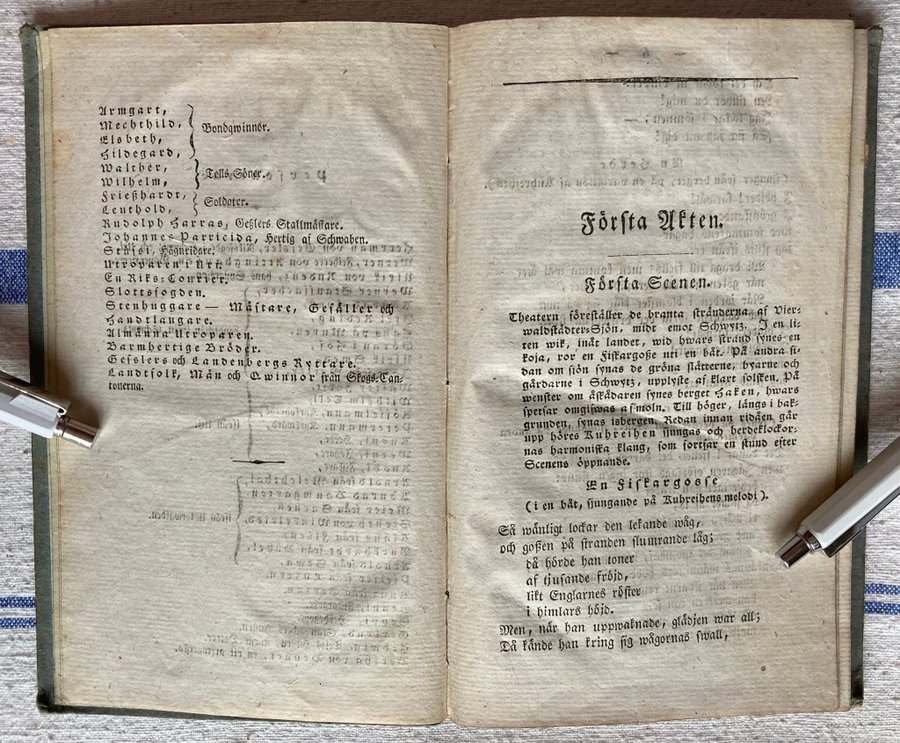 Armgart,
Mechthild,
Elsbeth,
Hildegard,
Bondqwinnor.
Walther,
Wilhelm,
Tells Söner.
Frießhardt,
Leuthold,
Soldater.
Rudolph Harras, Geßlers Stallmästare.
Johannes Parricida, Hertig af Schwaben.
Stüssi, Hågnridare.
Utroparen i Uri.
En Riks-Courier.
Slottsfogden.
Stenhuggare — Mästare, Gesäller och
Handtlangare.
Allmänna Utroparen.
Barmhertige Bröder.
Geßlers och Landenbergs Ryttare.
Landtfolk, Män och Qwinnor från Skogs-Can-
tonerna.
Första Akten.
Första Scenen.
Theatern föreställer de branta stränderna af Vier-
waldstädter-Sjön, midt emot Schwytz. I en li-
ten wik, inåt landet, wid hwars strand synes en
koja, ror en Fiskargoße uti en båt. På andra si-
dan om sjön synas de gröna slätterne, byarne och
gårdarne i Schwytz, upplyste af klart solsken. På
wenster om åskådaren synes berget Haken, hwars
spetsar omgiswas af moln. Till höger, längs i bak-
grunden, synes isbergen. Redan innan ridåen går
upp höres Kuhreihen sjungas och herdeklockor-
nas harmoniska klang, som fortfar en stund efter
Scenens öppnande.
En Fiskargosse
(i en båt, sjungande på Kuhreihens melodi).
Så wänligt lockar den lekande wåg,
och goßen på stranden slumrande låg;
då hörde han toner
af tjusande fröjd,
likt Englarnes röster
i himlars höjd.
Men, när han uppwaknade, glädjen war all;
Då kände han kring sig wågornas swall,